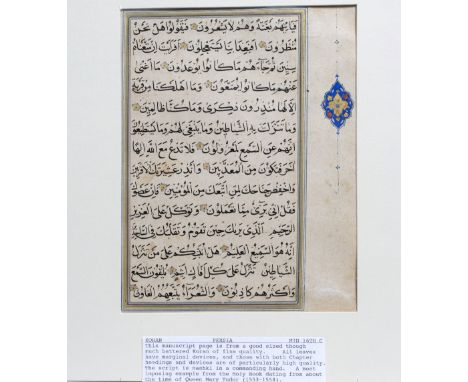 فَيَأْتِيَهُمْ بَغْتَةً وَهُمْ لَا يَشْعُرُونَ فَيَقُولُوا هَلْ نَحْنُ
مُنْظَرُونَ أَفَبِعَذَابِنَا يَسْتَعْجِلُونَ أَفَرَأَيْتَ إِنْ مَتَّعْنَاهُمْ
سِنِينَ ثُمَّ جَاءَهُمْ مَا كَانُوا يُوعَدُونَ مَا أَغْنَى
عَنْهُمْ مَا كَانُوا يُمَتَّعُونَ وَمَا أَهْلَكْنَا مِنْ قَرْيَةٍ
إِلَّا لَهَا مُنْذِرُونَ ذِكْرَى وَمَا كُنَّا ظَالِمِينَ
وَمَا تَنَزَّلَتْ بِهِ الشَّيَاطِينُ وَمَا يَنْبَغِي لَهُمْ وَمَا يَسْتَطِيعُونَ
إِنَّهُمْ عَنِ السَّمْعِ لَمَعْزُولُونَ فَلَا تَدْعُ مَعَ اللهِ إِلَهًا
آخَرَ فَتَكُونَ مِنَ الْمُعَذَّبِينَ وَأَنْذِرْ عَشِيرَتَكَ الْأَقْرَبِينَ
وَاخْفِضْ جَنَاحَكَ لِمَنِ اتَّبَعَكَ مِنَ الْمُؤْمِنِينَ فَإِنْ عَصَوْكَ
فَقُلْ إِنِّي بَرِيءٌ مِمَّا تَعْمَلُونَ وَتَوَكَّلْ عَلَى الْعَزِيزِ
الرَّحِيمِ الَّذِي يَرَيكَ حِينَ تَقُومُ وَتَقَلُّبَكَ فِي السَّاجِدِينَ
إِنَّهُ هُوَ السَّمِيعُ الْعَلِيمُ هَلْ أُنَبِّئُكُمْ عَلَى مَنْ تَنَزَّلُ
الشَّيَاطِينُ تَنَزَّلُ عَلَى كُلِّ أَفَّاكٍ أَثِيمٍ يُلْقُونَ السَّمْعَ
وَأَكْثَرُهُمْ كَاذِبُونَ وَالشُّعَرَاءُ يَتَّبِعُهُمُ الْغَاوُنَ
KORAN PERSIA MID 16TH C
This manuscript page is from a good sized though
much battered Koran of fine quality. All leaves
have marginal devices, and those with both Chapter
headings and devices are of particularly high quality.
The script is naskhi in a commanding hand. A most
imposing example from the Holy Book dating from about
the time of Queen Mary Tudor (1553-1558).